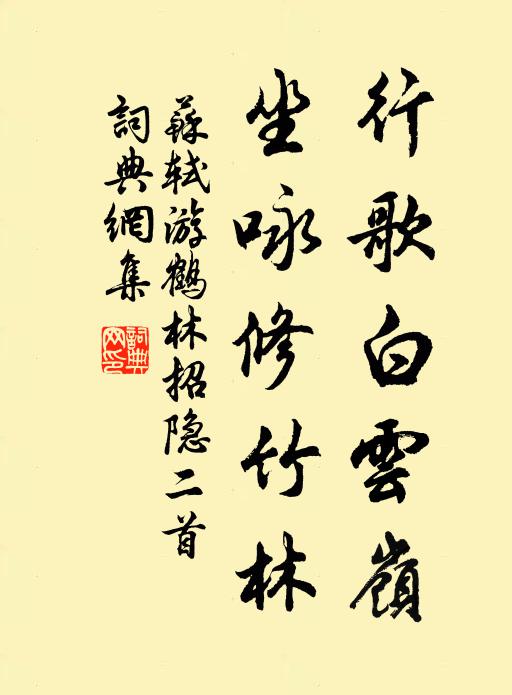 行歌白雲嶺
坐咏修竹林
蘇軾游鶴林招隐二首
詞典網集
詞典網印